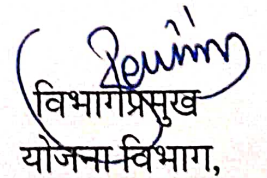 विभागप्रमुख
योजना विभाग,